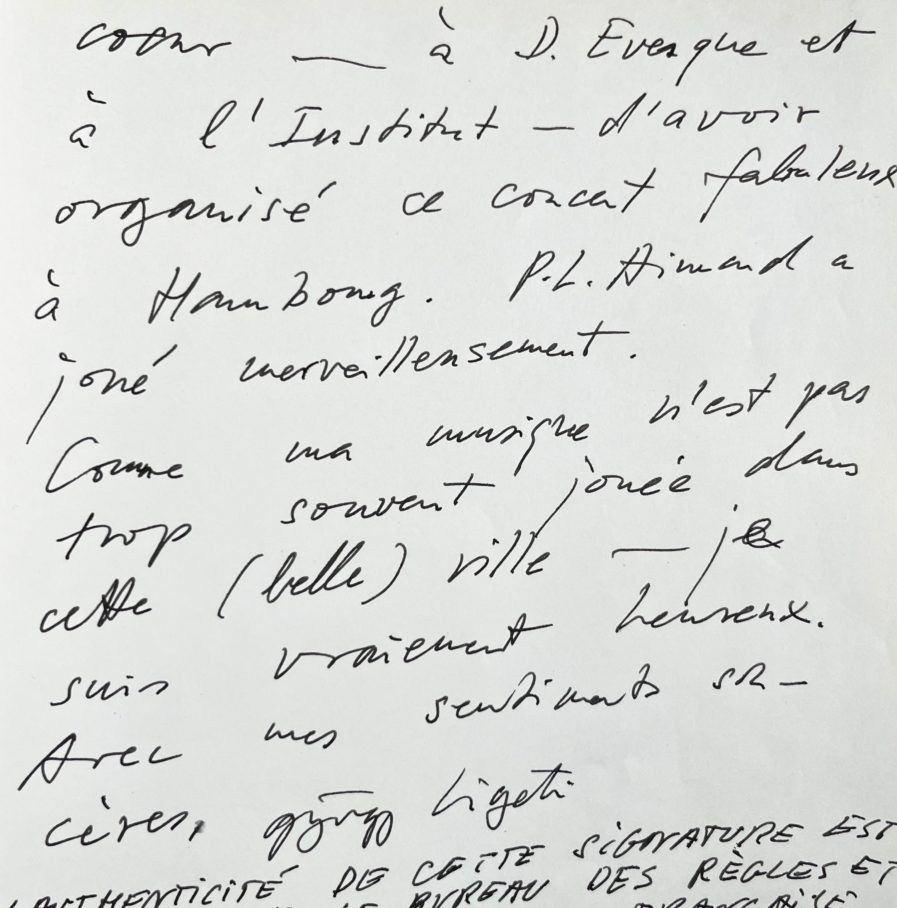 coeur — à D. Evesque et
à l'Institut — d'avoir
organisé ce concert fabuleux
à Hambourg. P.L. Aimard a
joué merveilleusement.
Comme ma musique n'est pas
trop souvent jouée dans
cette (belle) ville — je
suis vraiement heureux.
Avec mes sentiments sin-
cères, györgy Ligeti
L'AUTHENTICITÉ DE CETTE SIGNATURE EST
BUREAU DES RÈGLES ET